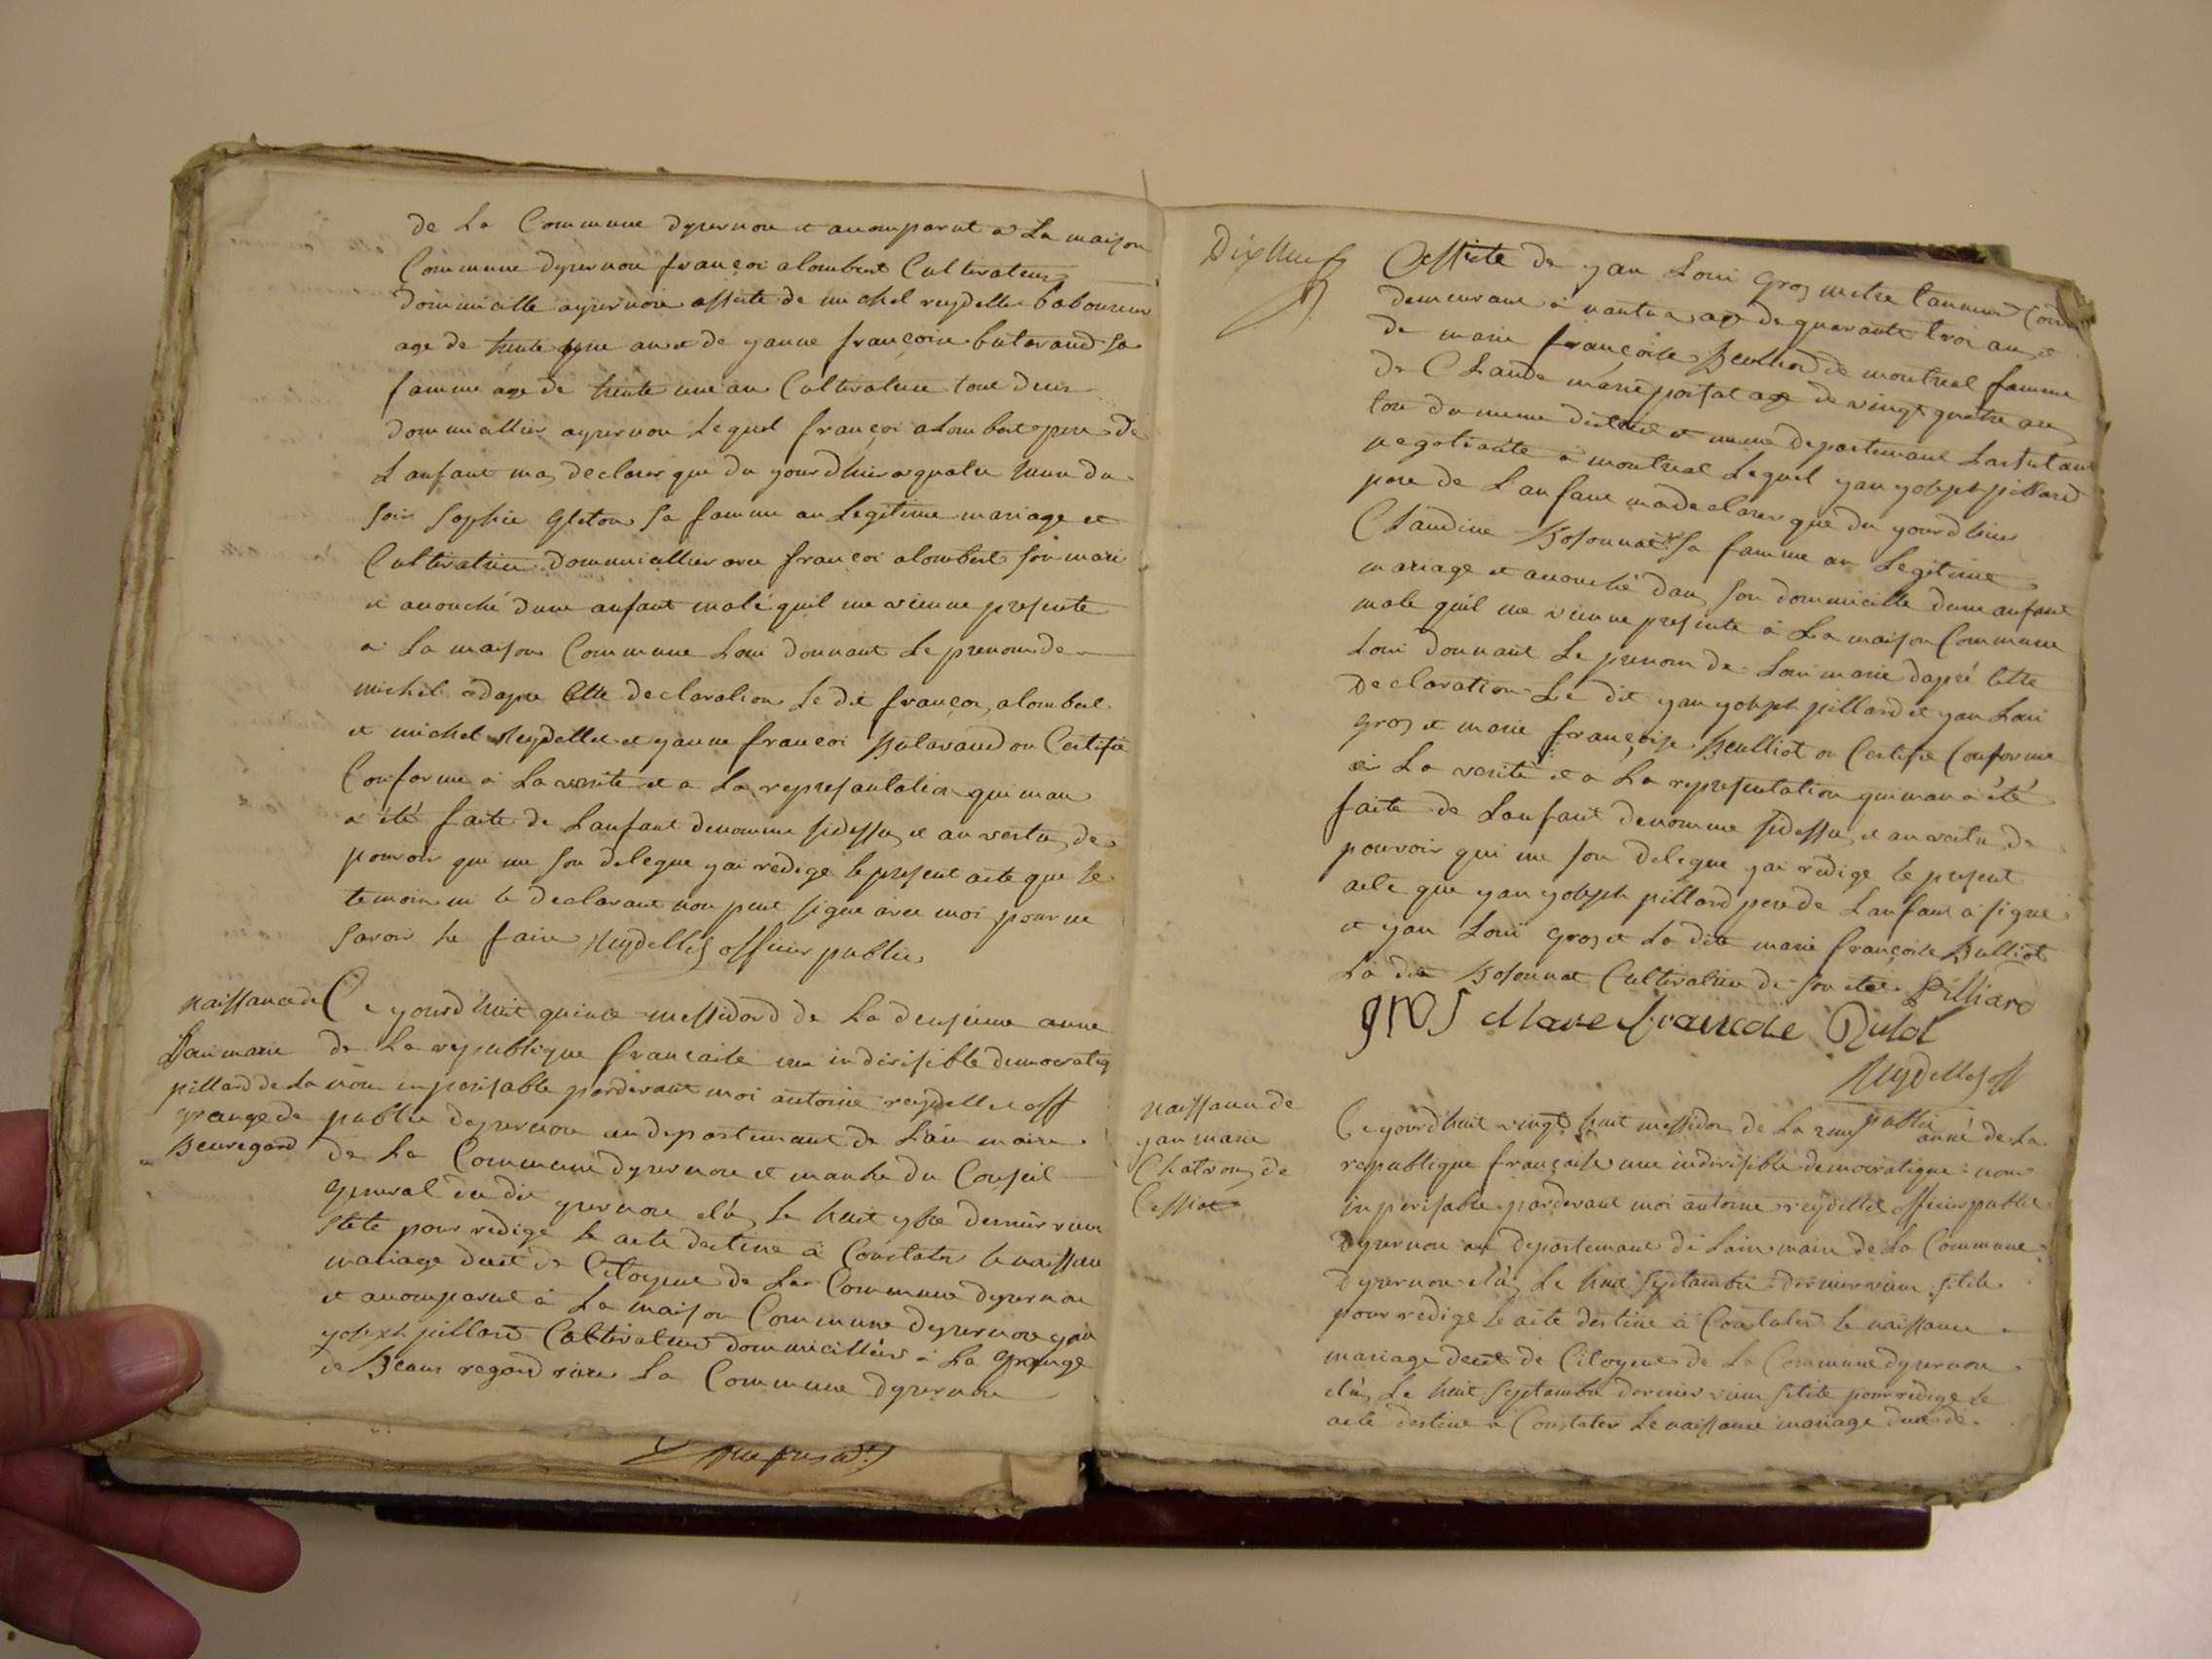 de La Commune dyzernon et acomparut a La maison
Commune dyzernon françoi alombert Cultivateur
dommicille ayzernon assiste de michel reydellet laboureur
age de trente ans et de yanne françoise butavand sa
famme age de trente une an Cultivatrice tout deus
dommicillier ayzernon Lequel françoi alombert pere de
Lanfant mas declarer que du yourdhuis a quatre heure du
soir Sophie Gleton sa famme an Legitime mariage et
Cultivatrice dommicillier avec françoi alombert son mari
et acouché dune anfant male quil me vienne presente
a La maison Commune Loui donnant Le prenom de
michel a dapre Cette declaration Le dit françoi alombert
et michel Reydellet et yanne françoi Butavand on Certifié
Conforme a La verite et a La represantation qui man
a été faite de Lanfant denomme sidessu et an vertu de
pouvoir qui me son delegue yai redige le present acte que le
temoin ni le declarant non peut signe avec moi pour ne
savoir le faire Reydellet officier public
naissance de
Loui marie
pillard de La
grange de
Beauregard
Ce yourdhuit quince messidord de La deusieme anne
de La republique francaise une indivisible democratiq
nome inperisable pardevant moi antoine reydellet off
public dyzernon au departemant de Lain maire
de La Commune dyzernon et manbre du Conseil
General du dit yzernon elu le huit 7bre dernier vieux
stile pour redige le acte destine a Constater le naissance
mariage decet de Citoyene de La Commune dyzernon
et acomparut a La maison Commune dyzernon yan
yoseph pillard Cultivateur dommicillier a La Grange
de Beaus regard riere La Commune dyzernon
Dix Neuf
assiste de yan Loui Gros metre tanneur
demeurant a nantua age de quarante troi ans et
de marie françoise Beulliod de montreal famme
de Claude marie portat age de vingt quatre ans
tou du meme district et meme departemant
negotiante a montreal Lequel yan yoseph pillard
pere de Lanfant ma declarer que du yourdhuis
Claudine Bosonnat sa famme an Legitime
mariage et acouché dans son dommicille dune anfant
male quil me vienne presente a La maison Commune
Loui donnant Le prenom de Loui marie dapré Cette
declaration Le dit yan yoseph pillard et yan Loui
gros et marie françoise Beulliot on Certifie Conforme
a La verité et a La representation qui man a été
faite de Lanfant denomme sidessu et an vertu de
pouvoir qui me son delegue yai redige le present
acte que yan yoseph pillard pere de Lanfant a signe
et yan Loui gros et La dite marie françoise Bulliot
La dite Bosonnat Cultivatrice de son etat Pilliard
gros Marie francoise
Reydellet off
public
naissance de
yan marie
Chatron de
Cessiat
Ce yourdhuit vingt huit messidor de La 2me anné de La
republique française une indivisible democratique nome
inperisable pardevant moi antoine reydellet officier public
dyzernon au departemant de Lain maire de La Commune
dyzernon elu Le huit Septambre dernier vieux stile
pour redige le acte destine a Constater le naissance
mariage decet de Citoyene de La Commune dyzernon
elu Le huit Septambre dernier vieux stile pour redige le
acte destine a Constater Le naissance mariage decet de